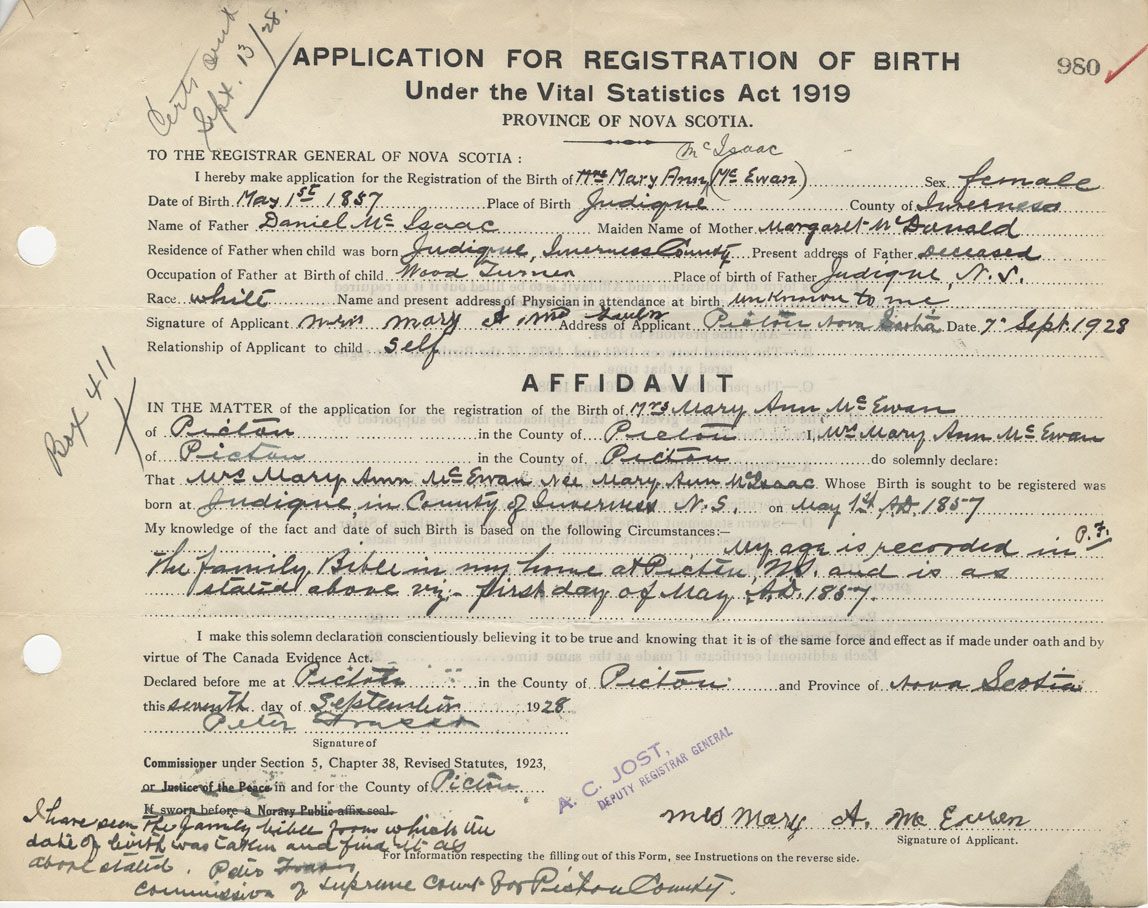 Certs out
Sept. 13/28.
APPLICATION FOR REGISTRATION OF BIRTH
980
Under the Vital Statistics Act 1919
PROVINCE OF NOVA SCOTIA.
Mc Isaac
TO THE REGISTRAR GENERAL OF NOVA SCOTIA :
I hereby make application for the Registration of the Birth of Mrs Mary Ann (Mc Ewan) Sex female
Date of Birth May 1st 1857 Place of Birth Judique County of Inverness
Name of Father Daniel Mc Isaac Maiden Name of Mother Margaret McDonald
Residence of Father when child was born Judique, Inverness County Present address of Father Deceased
Occupation of Father at Birth of child Wood Turner Place of birth of Father Judique, N.S.
Race white Name and present address of Physician in attendance at birth unknown to me
Signature of Applicant Mrs Mary A Mc Address of Applicant Pictou Nova Scotia Date 7 Sept. 1928
Relationship of Applicant to child self
Box 411
AFFIDAVIT
IN THE MATTER of the application for the registration of the Birth of Mrs Mary Ann McEwan
of Pictou in the County of Pictou I, Mrs Mary Ann McEwan
of Pictou in the County of Pictou do solemnly declare:
That Mrs Mary Ann McEwan Nee Mary Ann McIsaac Whose Birth is sought to be registered was
born at Judique, in County of Inverness N.S. on May 1st A.D. 1857
My knowledge of the fact and date of such Birth is based on the following Circumstances:—
My age is recorded in P.F.
the family Bible in my home at Pictou, N.S. and is as
stated above viz:- first day of May A.D. 1857.
I make this solemn declaration conscientiously believing it to be true and knowing that it is of the same force and effect as if made under oath and by
virtue of The Canada Evidence Act.
Declared before me at Pictou in the County of Pictou and Province of Nova Scotia
this seventh day of September 1928
Peter Fraser
Signature of
Commissioner under Section 5, Chapter 38, Revised Statutes, 1923,
or Justice of the Peace in and for the County of Pictou
If sworn before a Norary Public affix seal.
A. C. JOST,
DEPUTY REGISTRAR GENERAL
Mrs Mary A. Mc Ewen
Signature of Applicant.
I have seen the family bible from which the
date of birth was taken and find it as
above stated. Peter Fraser
For Information respecting the filling out of this Form, see Instructions on the reverse side.
Commission of Supreme Court for Pictou County.